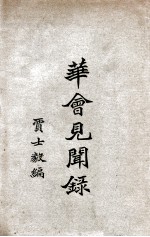 華會見聞錄
賈士毅編